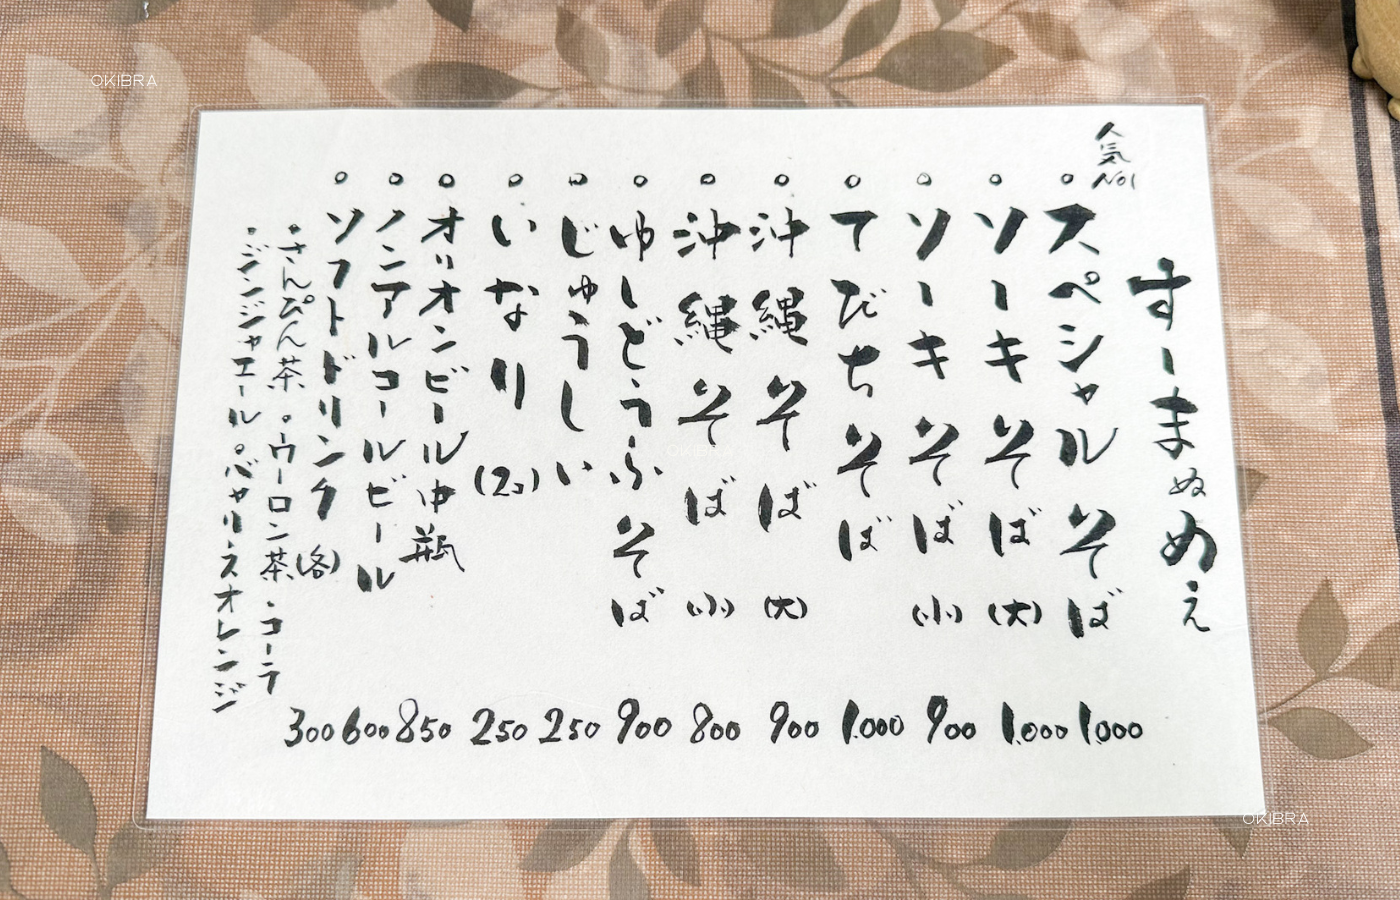 すーまぬめぇ
人気No1
。スペシャルそば 1.000
。ソーキそば(大) 1.000
。ソーキそば(小) 900
。てびちそば 1.000
。沖縄そば(大) 900
。沖縄そば(小) 800
。ゆしどうふそば 900
。じゅうしい 250
。いなり(2コ) 250
。オリオンビール中瓶 850
。ノンアルコールビール 600
。ソフトドリンク(各) 300
・さんぴん茶・ウーロン茶・コーラ
・ジンジャエール・バヤリースオレンジ
OKIBRA
OKIBRA
OKIBRA